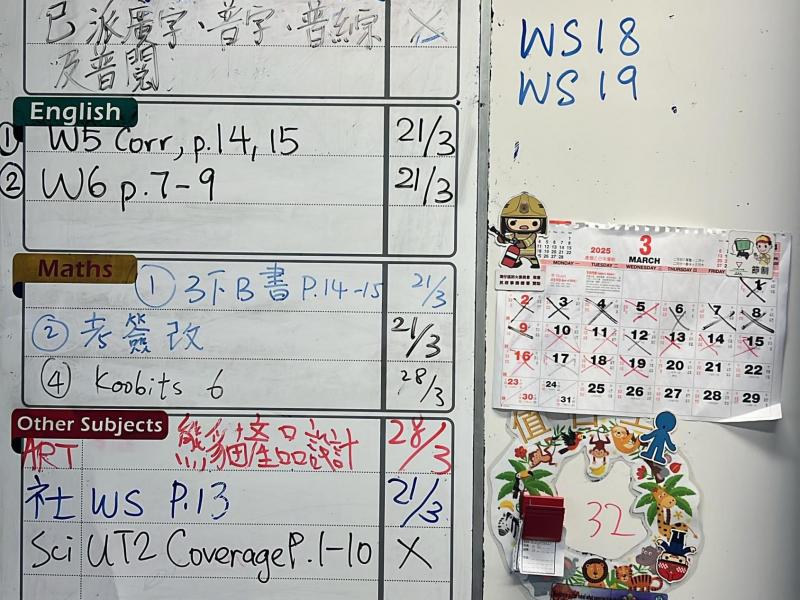 已派廣字、普字、普練
及普閱
X
English
① W5 Corr, p.14, 15 21/3
② W6 p.7-9 21/3
Maths
① 3下B書 P.14-15 21/3
② 考簽改 21/3
④ Koobits 6 28/3
Other Subjects
ART 熊貓產品設計 28/3
社 WS P.13 21/3
Sci UT2 Coverage P.1-10 X
WS18
WS19
2025 3 MARCH
節制
MONDAY TUESDAY WEDNESDAY THURSDAY FRIDAY
1
2 3 4 5 6 7 8
9 10 11 12 13 14 15
16 17 18 19 20 21 22
23 24 25 26 27 28 29
30 31
32